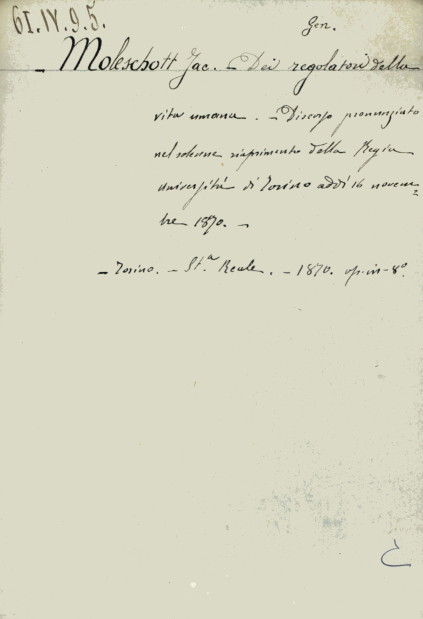 61.IV.9.5.
Gen.
— Moleschott Jac. — Dei regolatori della
vita umana. — Discorso pronunziato
nel solenne riaprimento della Regia
Università di Torino addì 16 novem=
bre 1870. —
— Torino. — St.a Reale. — 1870. op. in-8°.